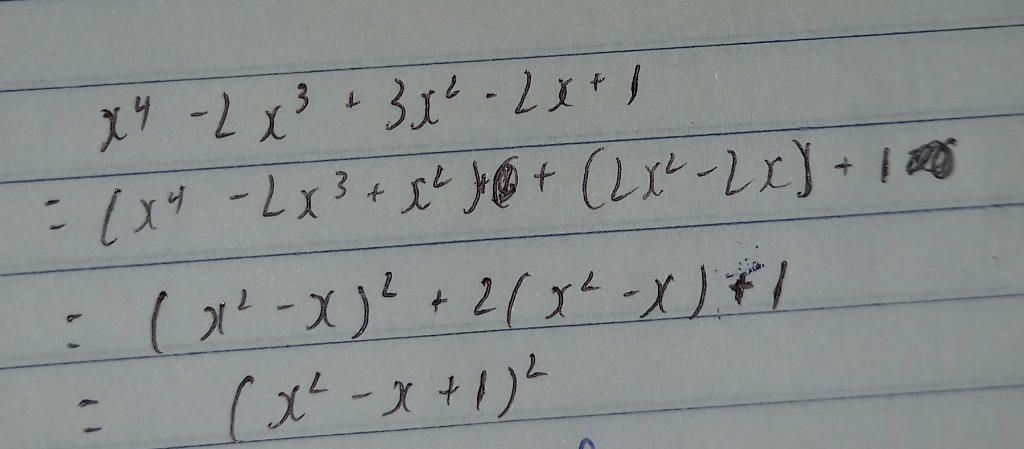 x⁴ - 2x³ + 3x² - 2x + 1
= (x⁴ - 2x³ + x²) + (2x² - 2x) + 1
= (x² - x)² + 2(x² - x) + 1
= (x² - x + 1)²